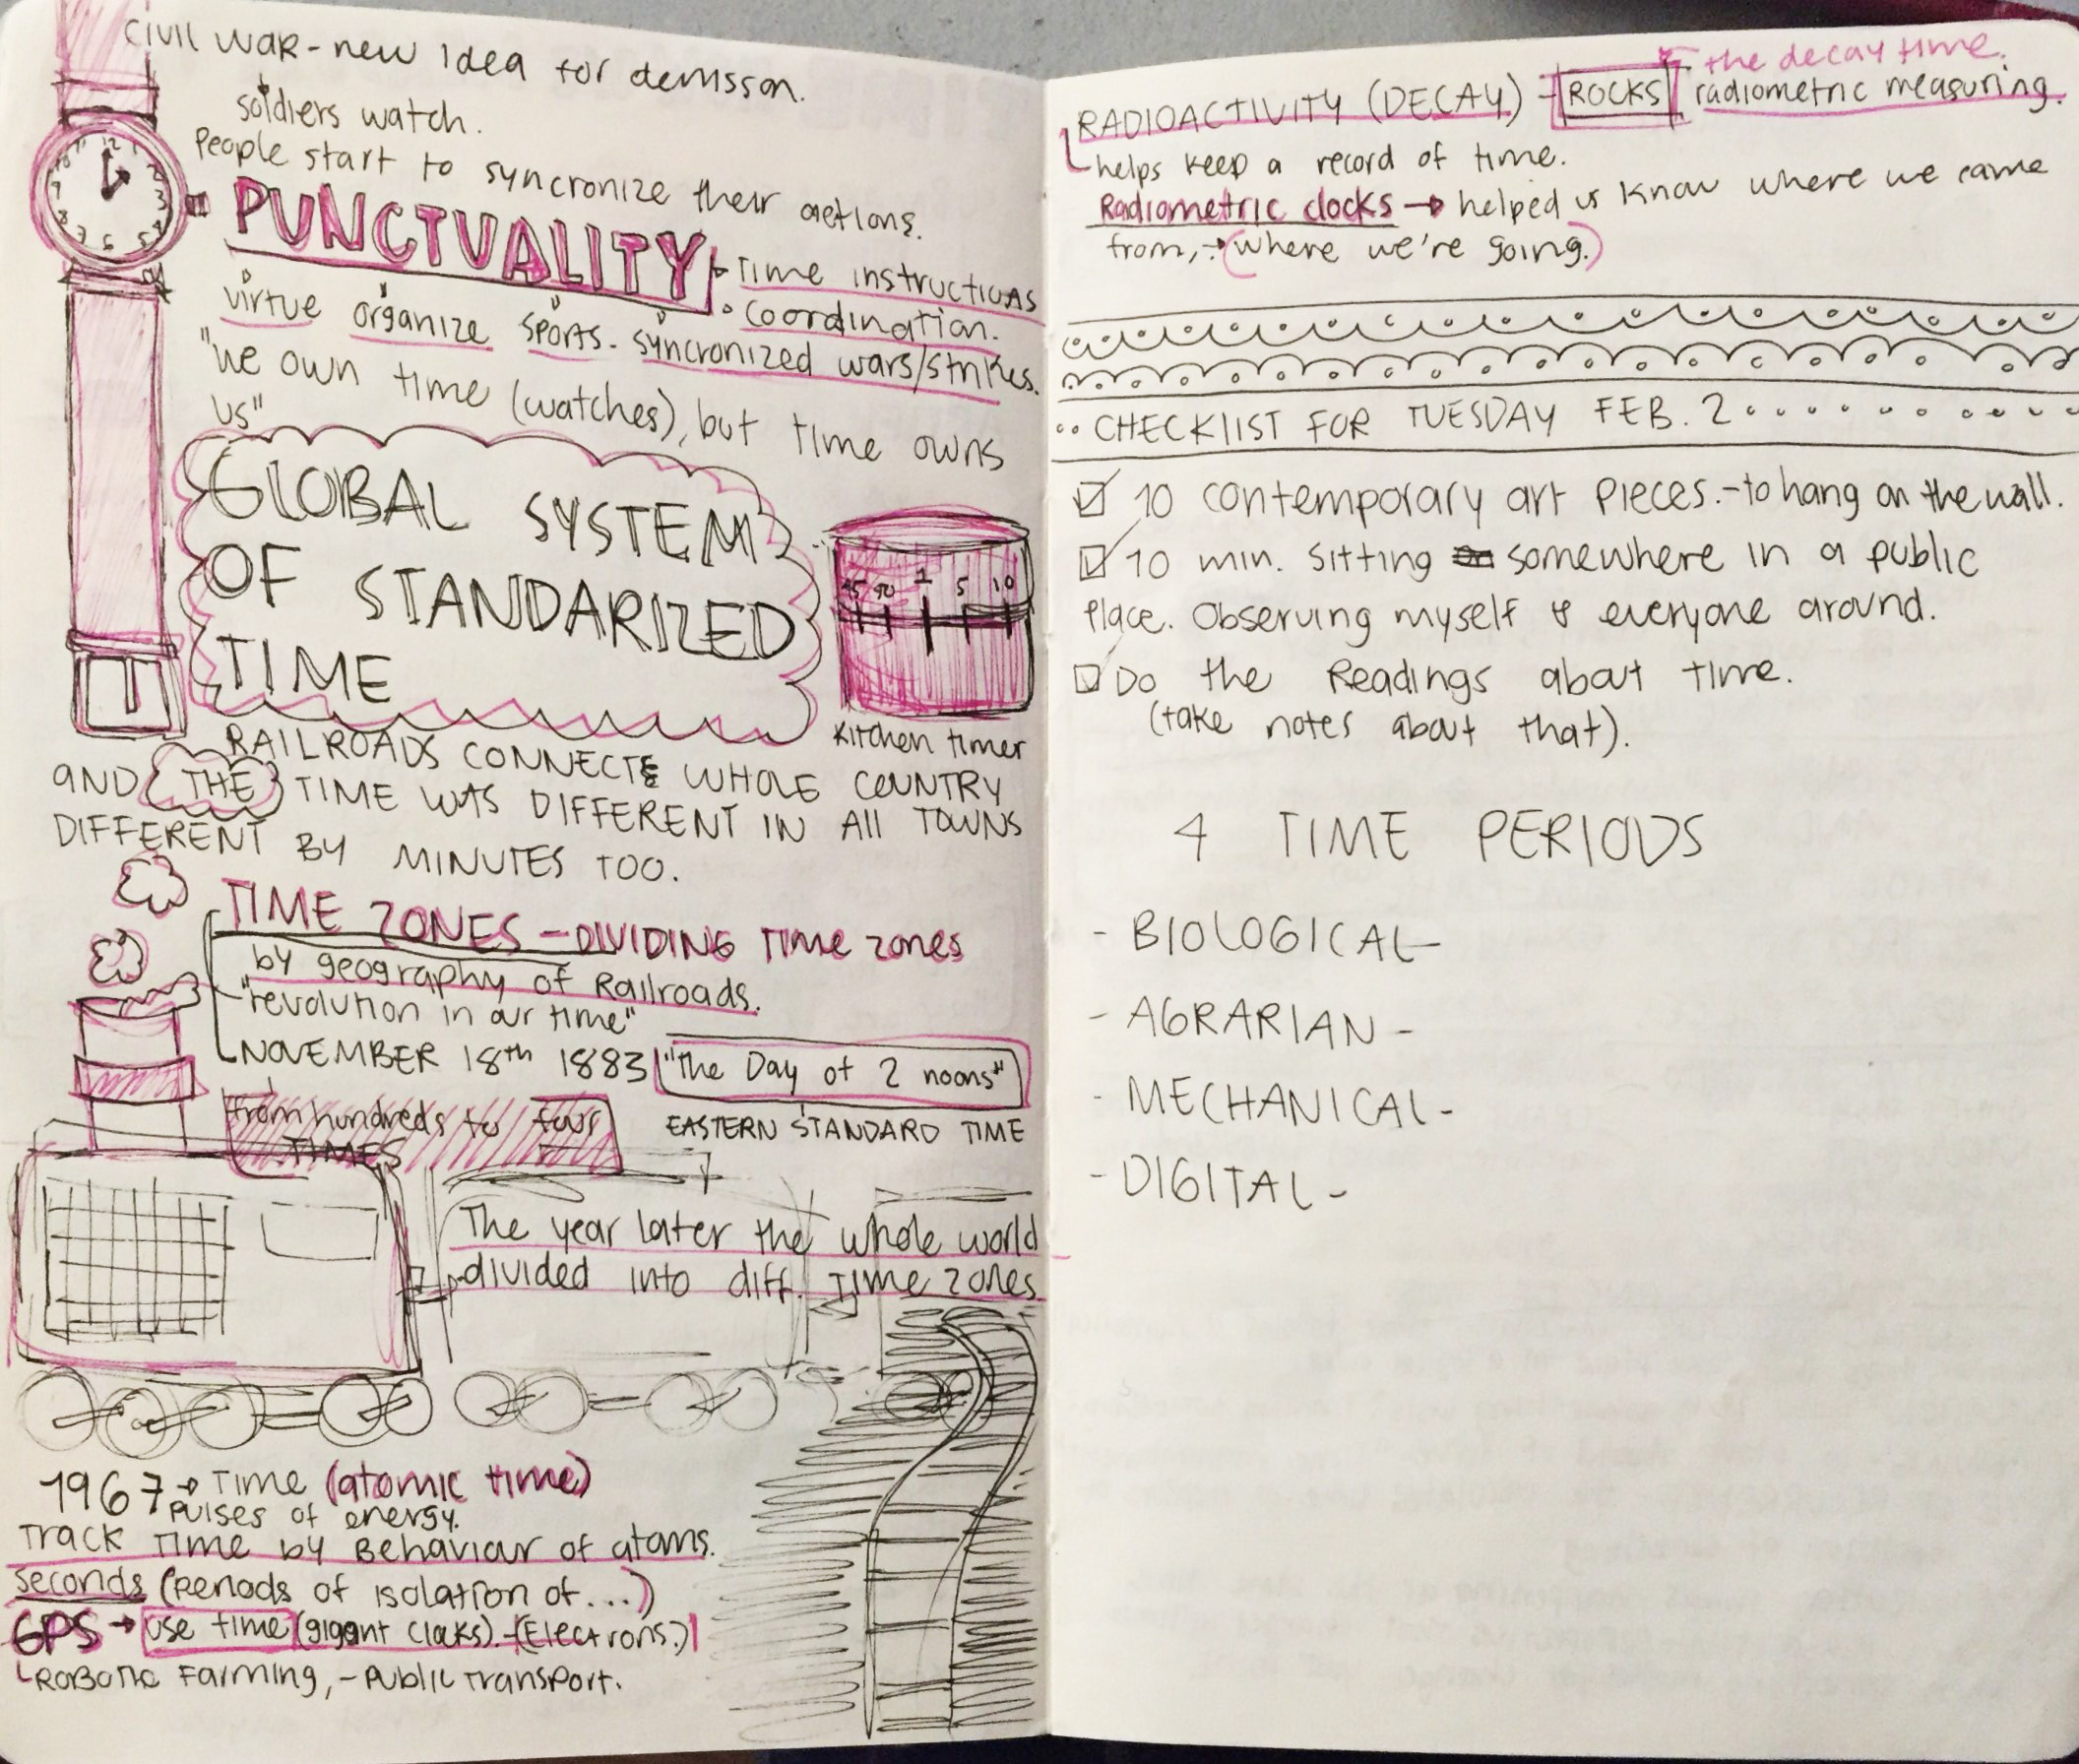 CIVIL WAR - new Idea for dennison.
soldiers watch.
People start to syncronize their actions.
PUNCTUALITY
Time instructions
Coordination.
virtue organize sports. syncronized wars/strikes.
"we own time (watches), but time owns
us"
GLOBAL SYSTEM
OF STANDARIZED
TIME
45 50 1 5 10
Kitchen timer
RAILROADS CONNECTE WHOLE COUNTRY
AND THE TIME WAS DIFFERENT IN All TOWNS
DIFFERENT BY MINUTES TOO.
TIME ZONES - DIVIDING Time zones
by geography of Railroads.
"revolution in our time"
NOVEMBER 18th 1883 "The Day of 2 noons"
from hundreds to four
TIMES
EASTERN STANDARD TIME
The year later the whole world
divided into diff. Time zones
1967 → TIME (atomic time)
Pulses of energy.
Track Time by Behaviour of atoms.
Seconds (Periods of isolation of...)
GPS → use time (gigant Cloks). - (Electrons.)
ROBOTIC Farming, - Public Transport.
the decay time.
RADIOACTIVITY (DECAY) - ROCKS radiometric measuring.
helps keep a record of time.
Radiometric clocks → helped us know where we came
from, → (where we're going.)
CHECKlIST FOR TUESDAY FEB. 2
10 contemporary art pieces. - to hang on the wall.
10 min. Sitting somewhere in a public
Place. Observing myself & everyone around.
Do the Readings about time.
(take notes about that).
4 TIME PERIODS
- BIOLOGICAL -
- AGRARIAN -
- MECHANICAL -
- DIGITAL -